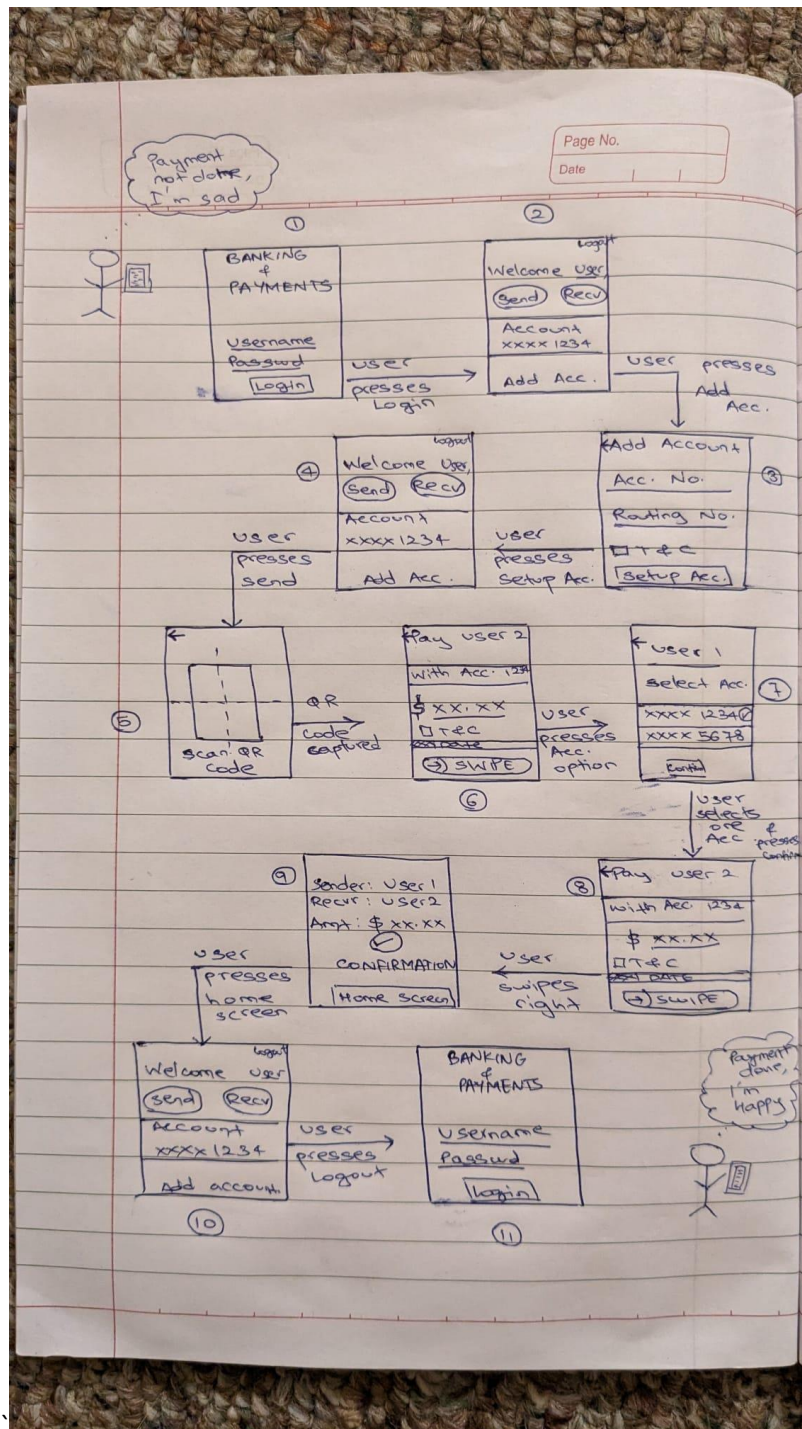 Page No.
Date
Payment
not done,
I'm sad
①
BANKING
&
PAYMENTS
Username
Passwd
Login
user
presses
Login
②
Logout
Welcome User,
Send Recv
Account
xxxx 1234
Add Acc.
user presses
Add
Acc.
③
←Add Account
Acc. No.
Routing No.
☐ T & C
Setup Acc.
user
presses
Setup Acc.
④
Logout
Welcome User,
Send Recv
Account
xxxx 1234
Add Acc.
user
presses
send
⑤
←
scan QR
code
QR
code
captured
⑥
←Pay user 2
with Acc. 1234
$ xx.xx
☐ T & C
→ SWIPE
user
presses
Acc.
option
⑦
← User 1
Select Acc.
xxxx 1234 ✓
xxxx 5678
user
selects
one
Acc &
presses
confirm
⑧
←Pay user 2
with Acc. 1234
$ xx.xx
☐ T & C
→ SWIPE
user
swipes
right
⑨
Sender: User 1
Recvr: User2
Amt: $ xx.xx
✓
CONFIRMATION
Home Screen
user
presses
home
screen
⑩
Logout
Welcome user
Send Recv
Account
xxxx 1234
Add account
user
presses
Logout
⑪
BANKING
&
PAYMENTS
Username
Passwd
Login
Payment
done,
I'm
Happy